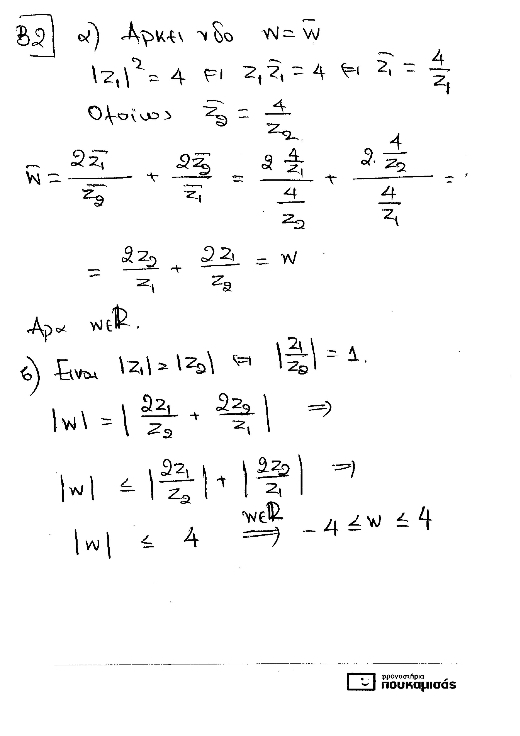 B2 α) Αρκεί νδο w = w̅
|z₁|² = 4 ⇔ z₁z̅₁ = 4 ⇔ z̅₁ = 4/z₁
Ομοίως z̅₂ = 4/z₂
w̅ = 2z̅₁/z̅₂ + 2z̅₂/z̅₁ = (2 4/z₁)/(4/z₂) + (2·4/z₂)/(4/z₁) =
= 2z₂/z₁ + 2z₁/z₂ = w
Αρα w∈ℝ.
β) Ειναι |z₁| = |z₂| ⇔ |z₁/z₂| = 1.
|w| = |2z₁/z₂ + 2z₂/z₁| ⇒
|w| ≤ |2z₁/z₂| + |2z₂/z₁| ⇒
|w| ≤ 4 w∈ℝ ⟹ -4 ≤ w ≤ 4
φροντιστήρια
πουκαμισάς